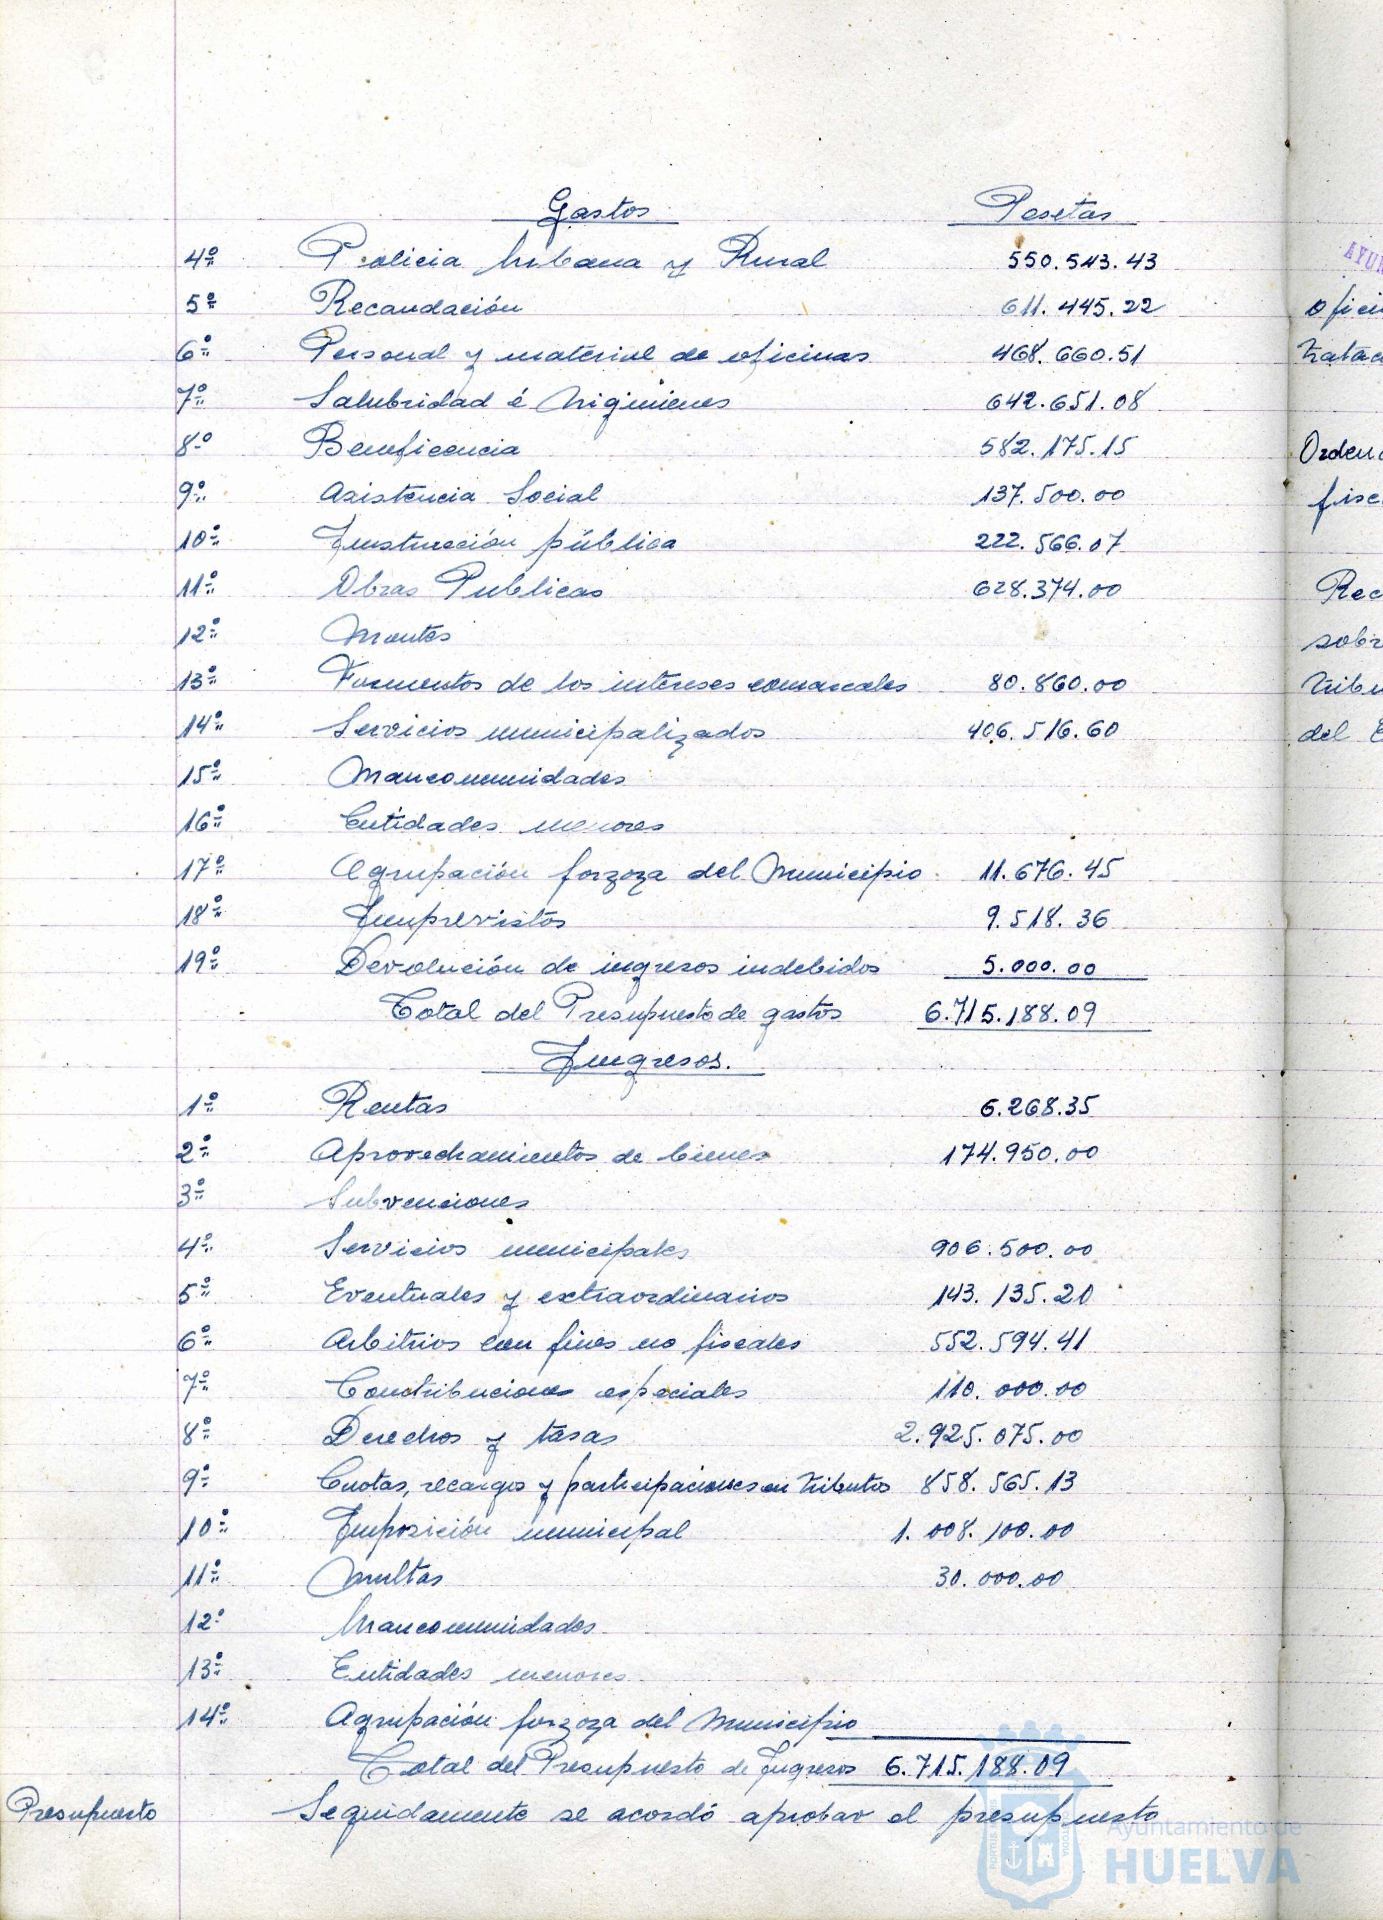 Gastos Pesetas
4º Policia Urbana y Rural 550.543.43
5º Recaudación 611.445.22
6º Personal y material de oficinas 468.660.51
7º Salubridad é higienes 642.651.08
8º Beneficencia 582.175.15
9º Asistencia Social 137.500.00
10º Instrucción pública 222.566.07
11º Obras Publicas 628.374.00
12º Montes
13º Formentos de los intereses comarcales 80.860.00
14º Servicios municipalizados 406.516.60
15º Mancomunidades
16º Entidades menores
17º Agrupación forzoza del Municipio 11.676.45
18º Imprevistos 9.518.36
19º Devolución de ingresos indebidos 5.000.00
Total del Presupuesto de gastos 6.715.188.09
Ingresos.
1º Rentas 6.268.35
2º Aprovechamientos de bienes 174.950.00
3º Subvenciones
4º Servicios municipales 906.500.00
5º Eventuales y extraordinarios 143.135.20
6º Arbitrios con fines no fiscales 552.594.41
7º Contribuciones especiales 110.000.00
8º Derechos y tasas 2.925.075.00
9º Cuotas, recargos y participaciones en tributos 858.565.13
10º Imposición municipal 1.008.100.00
11º Multas 30.000.00
12º Mancomunidades
13º Entidades menores
14º Agrupación forzoza del Municipio
Total del Presupuesto de Ingresos 6.715.188.09
Presupuesto Seguidamente se acordó aprobar el presupuesto
Ayuntamiento de
HUELVA
AYUN
ofici
Ordena
fisc
Rec
sobr
tribu
del